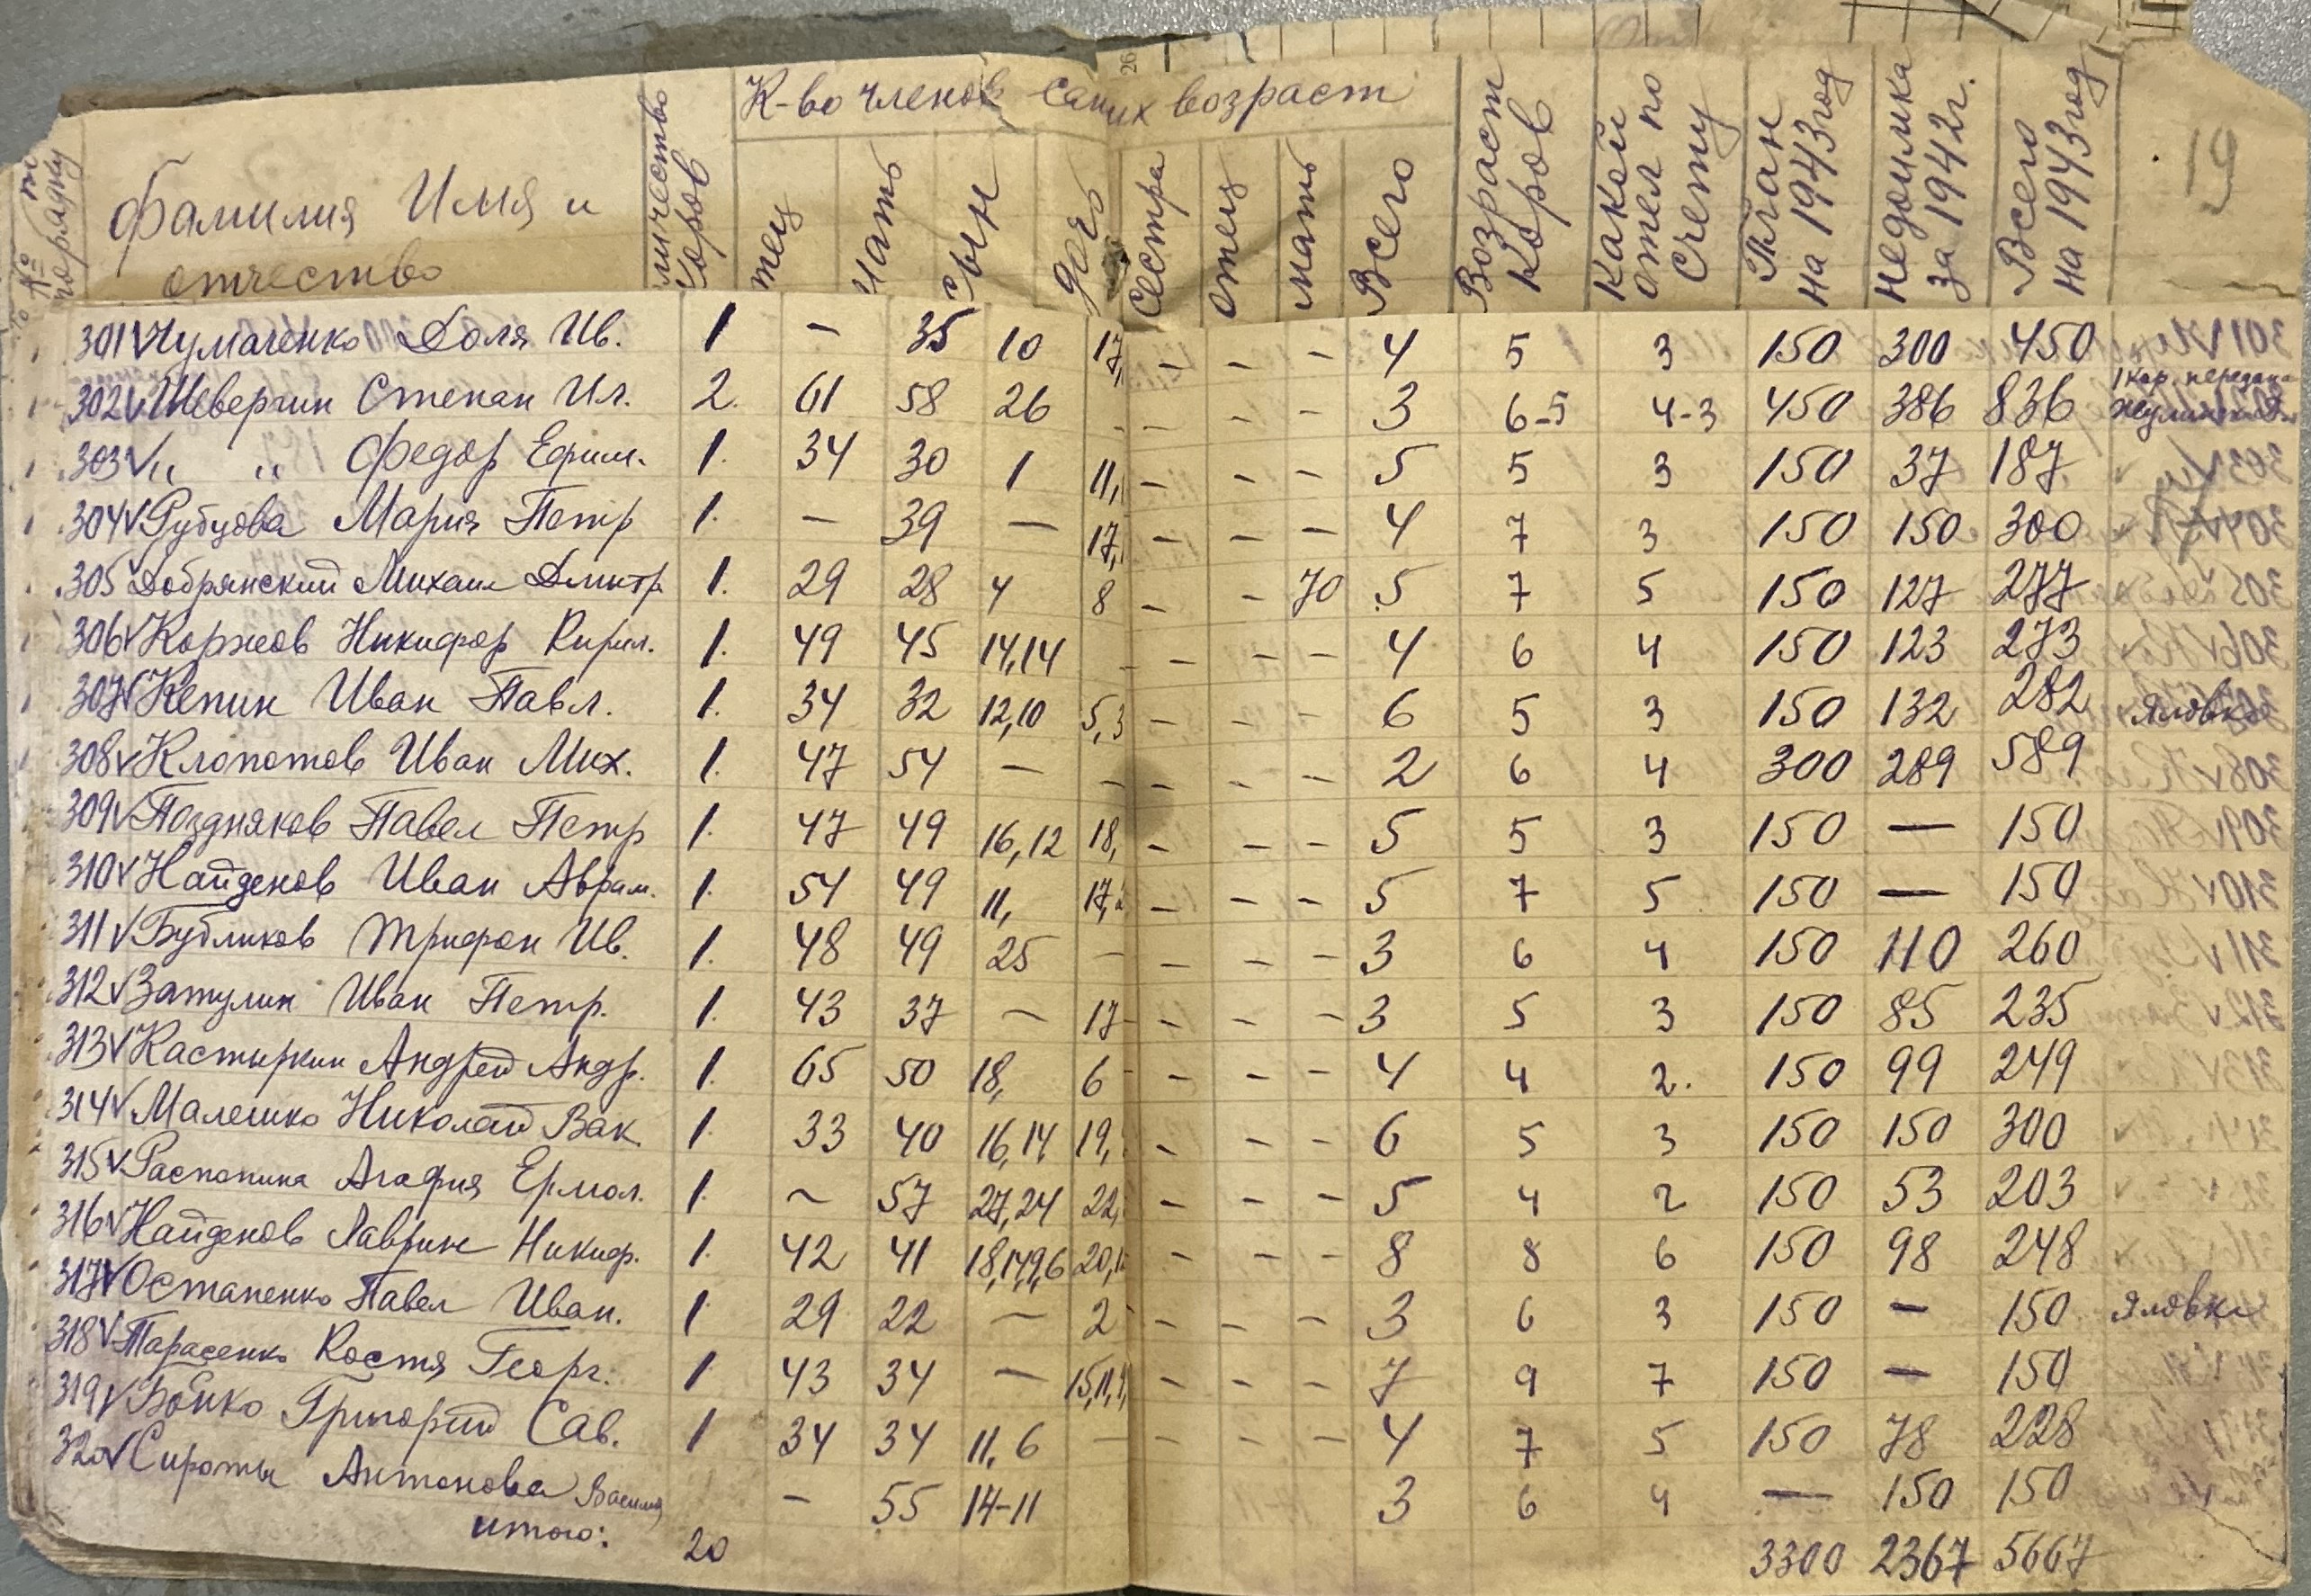 К-во членов с каких возраст
19
№ по порядку
Фамилия Имя и
отчество
количество коров
отец
мать
сын
дочь
сестра
отец
мать
Всего
Возраст коров
Какой отел по счету
План на 1943 год
недоимка за 1942 г.
Всего на 1943 год
301 V Чумаченко Доля Ив. 1 - 35 10 17, - - - 4 5 3 150 300 450
302 V Шевергин Степан Ил. 2. 61 58 26 - - - 3 6-5 4-3 450 386 836 1 кор. передана
303 V " " Федор Ефим. 1. 34 30 1 11, - - - 5 5 3 150 37 187
304 V Рубцова Мария Петр 1. - 39 - 17, - - - 4 7 3 150 150 300
305 Добрянский Михаил Дмитр 1. 29 28 4 8 - - 70 5 7 5 150 127 277
306 V Коржов Никифор Кирил. 1. 49 45 14,14 - - - - 4 6 4 150 123 273
307 V Кепин Иван Павл. 1. 34 32 12,10 5,3 - - - 6 5 3 150 132 282 яловка
308 V Клопотов Иван Мих. 1. 47 54 - - - - - 2 6 4 300 289 589
309 V Поздняков Павел Петр 1. 47 49 16,12 18, - - - 5 5 3 150 — 150
310 V Найденов Иван Аврам. 1. 54 49 11, 17, - - - 5 7 5 150 — 150
311 V Бубликов Трифон Ив. 1. 48 49 25 - - - - 3 6 4 150 110 260
312 V Затулин Иван Петр. 1. 43 37 - 17 - - - 3 5 3 150 85 235
313 V Кастыркин Андрей Андр. 1. 65 50 18, 6 - - - 4 4 2. 150 99 249
314 V Малешко Николай Вак. 1. 33 40 16,14, 19, - - - 6 5 3 150 150 300
315 V Распопина Агафия Ермол. 1. - 57 27,24 22, - - - 5 4 2 150 53 203
316 V Найденов Лаврин Никиф. 1. 42 41 18,14,9,6 20, - - - 8 8 6 150 98 248
317 V Остапенко Павел Иван. 1 29 22 - 2 - - - 3 6 3 150 - 150 яловка
318 V Тарасенко Костя Георг. 1 43 34 - 15,11, - - - 7 9 7 150 — 150
319 V Бойко Григорий Сав. 1 34 34 11, 6 - - - - 4 7 5 150 78 228
320 V Сироты Антонова Василия - 55 14-11 3 6 4 — 150 150
итого: 20 3300 2367 5667